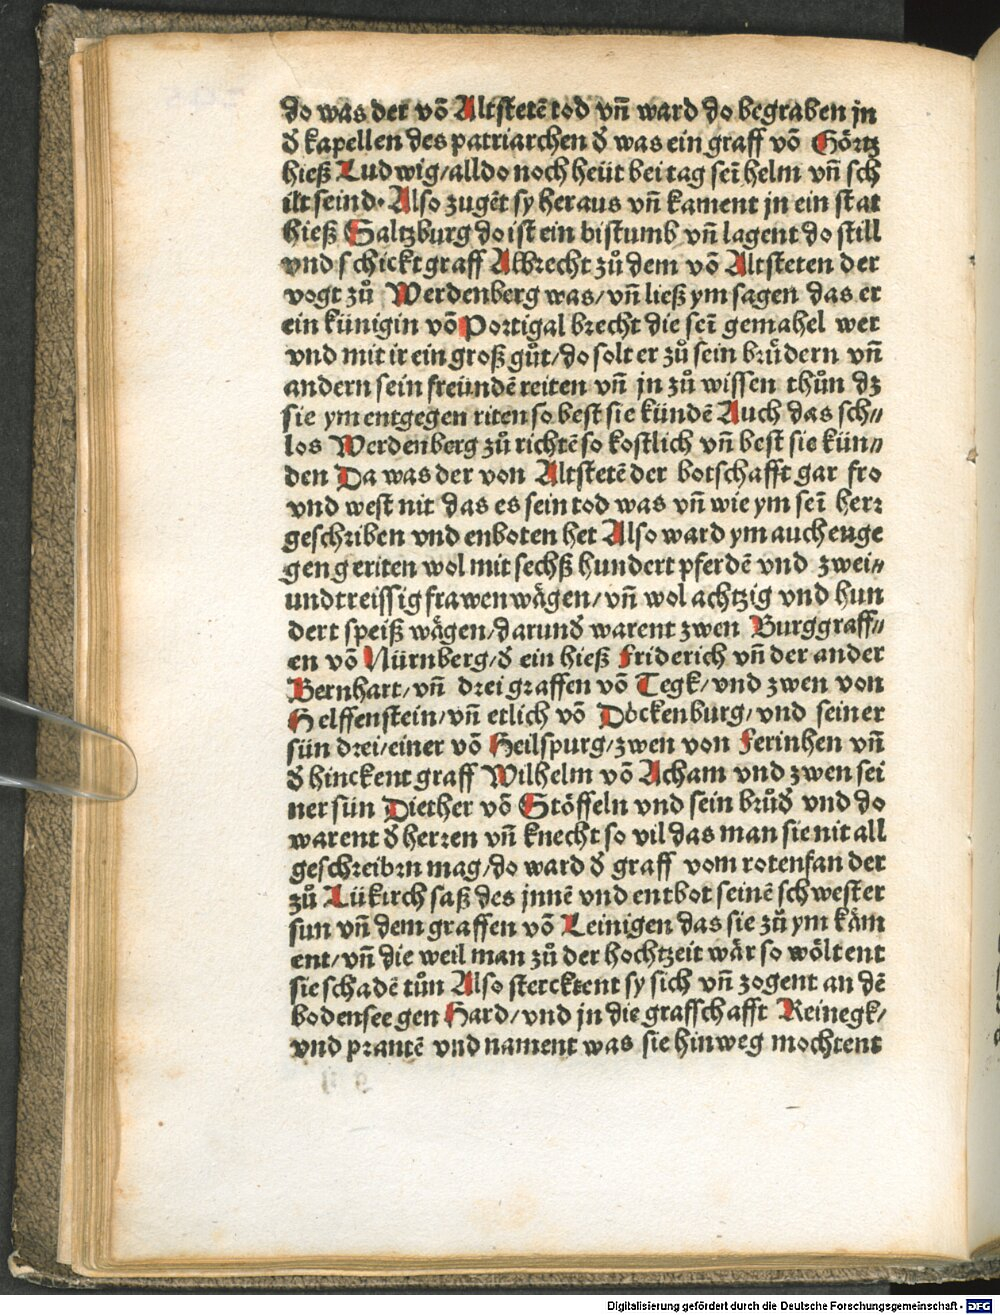 do was der vō Altstetē tod vn̄ ward do begraben jn
d̓ kapellen des patriarchen d̓ was ein graff vō Görtz
hieß Ludwig/alldo noch heüt bei tag sei̅ helm vn̄ sch
ilt seind. Also zugēt sy heraus vn̄ kament jn ein stat
hieß Saltzburg do ist ein bistumb vn̄ lagent do still
vnd schickt graff Albrecht zů dem vō Altsteten der
vogt zů Werdenberg was/vn̄ ließ ym sagen das er
ein künigin vō Portigal brecht die sei̅ gemahel wer
vnd mit ir ein groß gůt/do solt er zů sein brüdern vn̄
andern sein freündē reiten vn̄ jn zů wissen thůn dz
sie ym entgegen riten so best sie kündē Auch das sch⸗
los Werdenberg zů richtē so kostlich vn̄ best sie kün⸗
den Da was der von Altstetē der botschafft gar fro
vnd west nit das es sein tod was vn̄ wie ym sei̅ herꝛ
geschriben vnd enboten het Also ward ym auch enge
gen geriten wol mit sechß hundert pferdē vnd zwei⸗
undtreissig frawen wägen/vn̄ wol achtzig vnd hun
dert speiß wägen/darund̓ warent zwen Burggraff⸗
en vō Nürnberg/d̓ ein hieß friderich vn̄ der ander
Bernhart/vn̄ drei graffen vō Tegk/vnd zwen von
Helffenstein/vn̄ etlich vō Döckenburg/vnd seiner
sün drei/einer vō Heilspurg/zwen von Ferinhen vn̄
d̓ hinckent graff Wilhelm vō Acham vnd zwen sei
ner sün Diether vō Stöffeln vnd sein brůd̓ vnd do
warent d̓ herren vn̄ knecht so vil das man sie nit all
geschreibrn mag/do ward d̓ graff vom rotenfan der
zů Lükirch saß des jnnē vnd entbot seinē schwester
sun vn̄ dem graffen vō Leinigen das sie zů ym käm
ent/vn̄ die weil man zů der hochtzeit wär so wöltent
sie schadē tůn Also stercktent sy sich vn̄ zogent an dē
bodensee gen Hard/vnd jn die graffschafft Reinegk/
vnd prantē vnd nament was sie hinweg mochtent
Digitalisierung gefördert durch die Deutsche Forschungsgemeinschaft - DFG